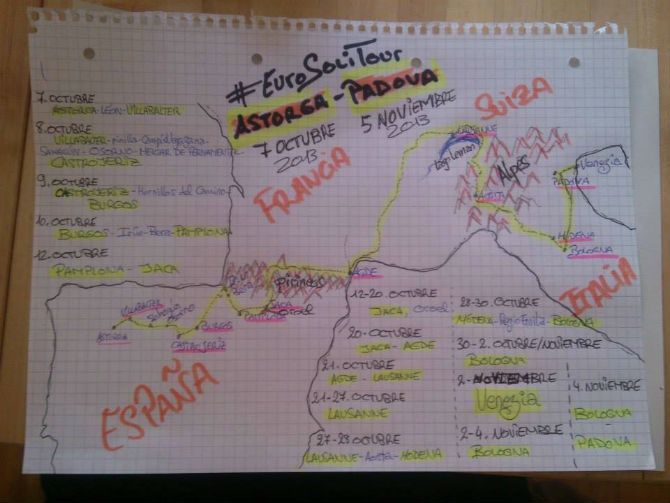 #EuroSoliTour
ASTORGA - PADOVA
7 OCTUBRE 2013
5 NOVIEMBRE 2013
7. OCTUBRE
ASTORGA - LEON - VILLABALTER
8. OCTUBRE
VILLABALTER -
SAHAGÚN - OSORNO - MELGAR DE FERNAMENTAL
CASTROJERIZ
9. OCTUBRE
CASTROJERIZ - Hornillos del Camino -
BURGOS
10. OCTUBRE
BURGOS - - PAMPLONA
12. OCTUBRE
PAMPLONA - JACA
FRANCIA
SUIZA
LAUSANNE
Lago Leman
Alpes
AOSTA
PADOVA
Venezia
MODENA
BOLOGNA
ITALIA
AGDE
Pirineos
JACA
OTOEL
VILLABALTER
Sahagún
Osorno
ASTORGA
BURGOS
CASTROJERIZ
ESPAÑA
12-20. OCTUBRE
JACA, OTOEL
20. OCTUBRE
JACA - AGDE
21. OCTUBRE
AGDE - LAUSANNE
21-27. OCTUBRE
LAUSANNE
27-28. OCTUBRE
LAUSANNE - AOSTA - MODENA
28-30. OCTUBRE
MODENA - Reggio Emilia - BOLOGNA
30-2. OCTUBRE/NOVIEMBRE
BOLOGNA
2. NOVIEMBRE
Venezia
2-4. NOVIEMBRE
BOLOGNA
4. NOVIEMBRE
BOLOGNA -
PADOVA